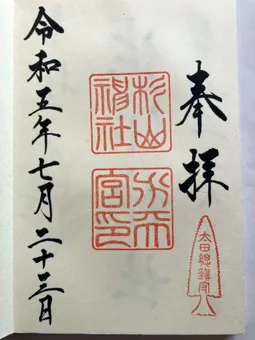 奉拝
太田總鎮守
杉山
神社
令和五年七月二十三日